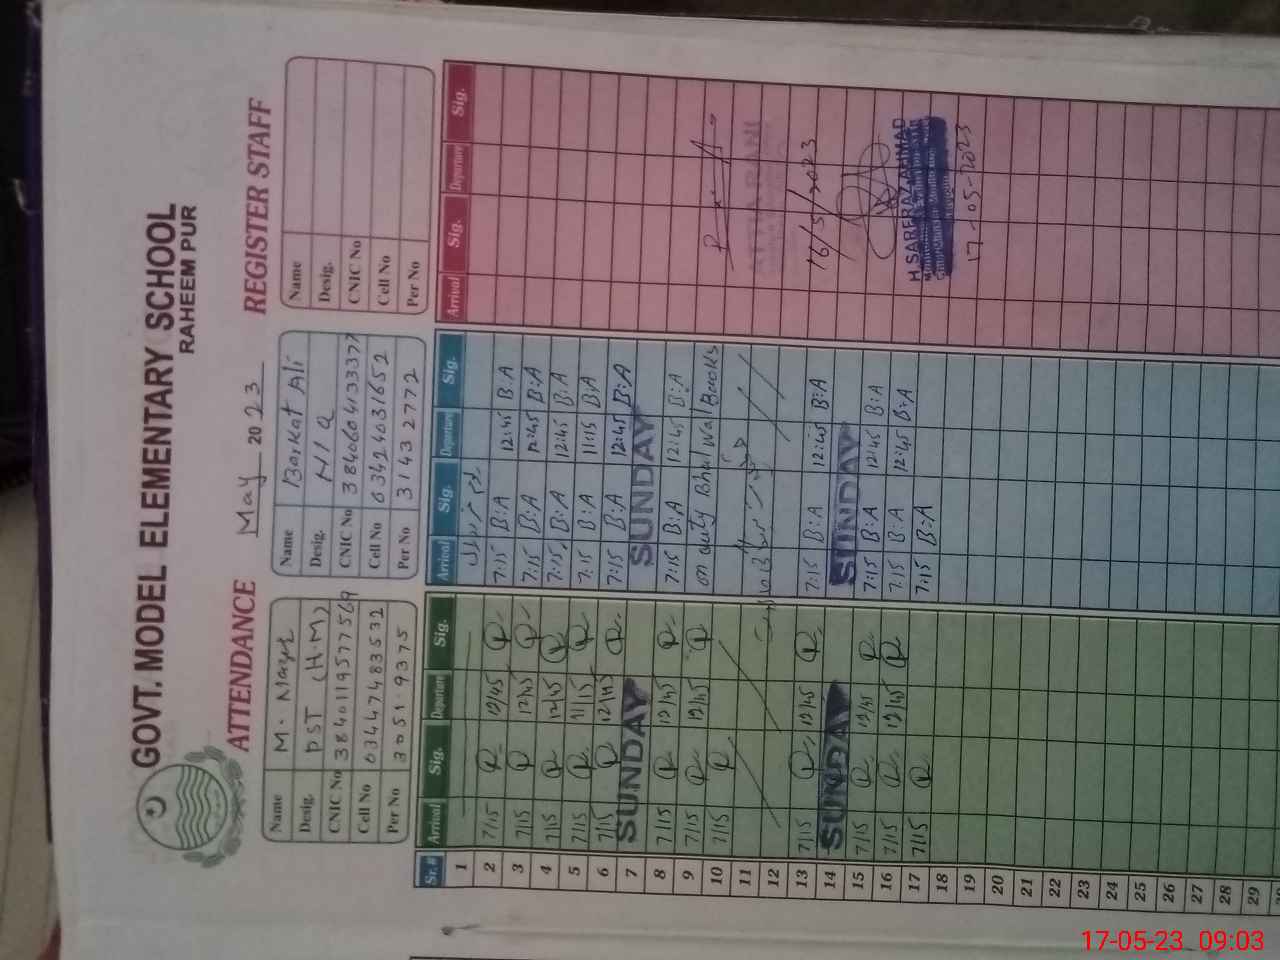 GOVT. MODEL ELEMENTARY SCHOOL
RAHEEM PUR
ATTENDANCE May 2023 REGISTER STAFF
Name M.
Desig. PST (H.M)
CNIC No 3840119577569
Cell No 03447483532
Per No 30519375
Name Barkat Ali
Desig. N/Q
CNIC No 3840604133377
Cell No 03424031652
Per No 31432772
Name
Desig.
CNIC No
Cell No
Per No
Sr.# Arrival Sig. Departure Sig. Arrival Sig. Departure Sig. Arrival Sig. Departure Sig.
1
2 7/15 12/45 7:15 B:A 12:45 B.A
3 7/15 12/45 7:15 B:A 12:45 B:A
4 7/15 12/45 7:15 B:A 12:45 B.A
5 7/15 11/15 7:15 B:A 11:15 B:A
6 7/15 12/45 7:15 B:A 12:45 B:A
7 SUNDAY SUNDAY
8 7/15 12/45 7:15 B:A 12:45 B:A
9 7/15 12/45 on duty Bhalwal Books
10 7/15
11
12
13 7/15 12/45 7:15 B:A 12:45 B:A 16/5/2023
14 SUNDAY SUNDAY
15 7/15 12/45 7:15 B:A 12:45 B:A
16 7/15 12/45 7:15 B:A 12:45 B:A
17 7/15 7:15 B:A H.SARFRAZ AHMAD
18
19 17-05-2023
20
21
22
23
24
25
26
27
28
29
17-05-23 09:03